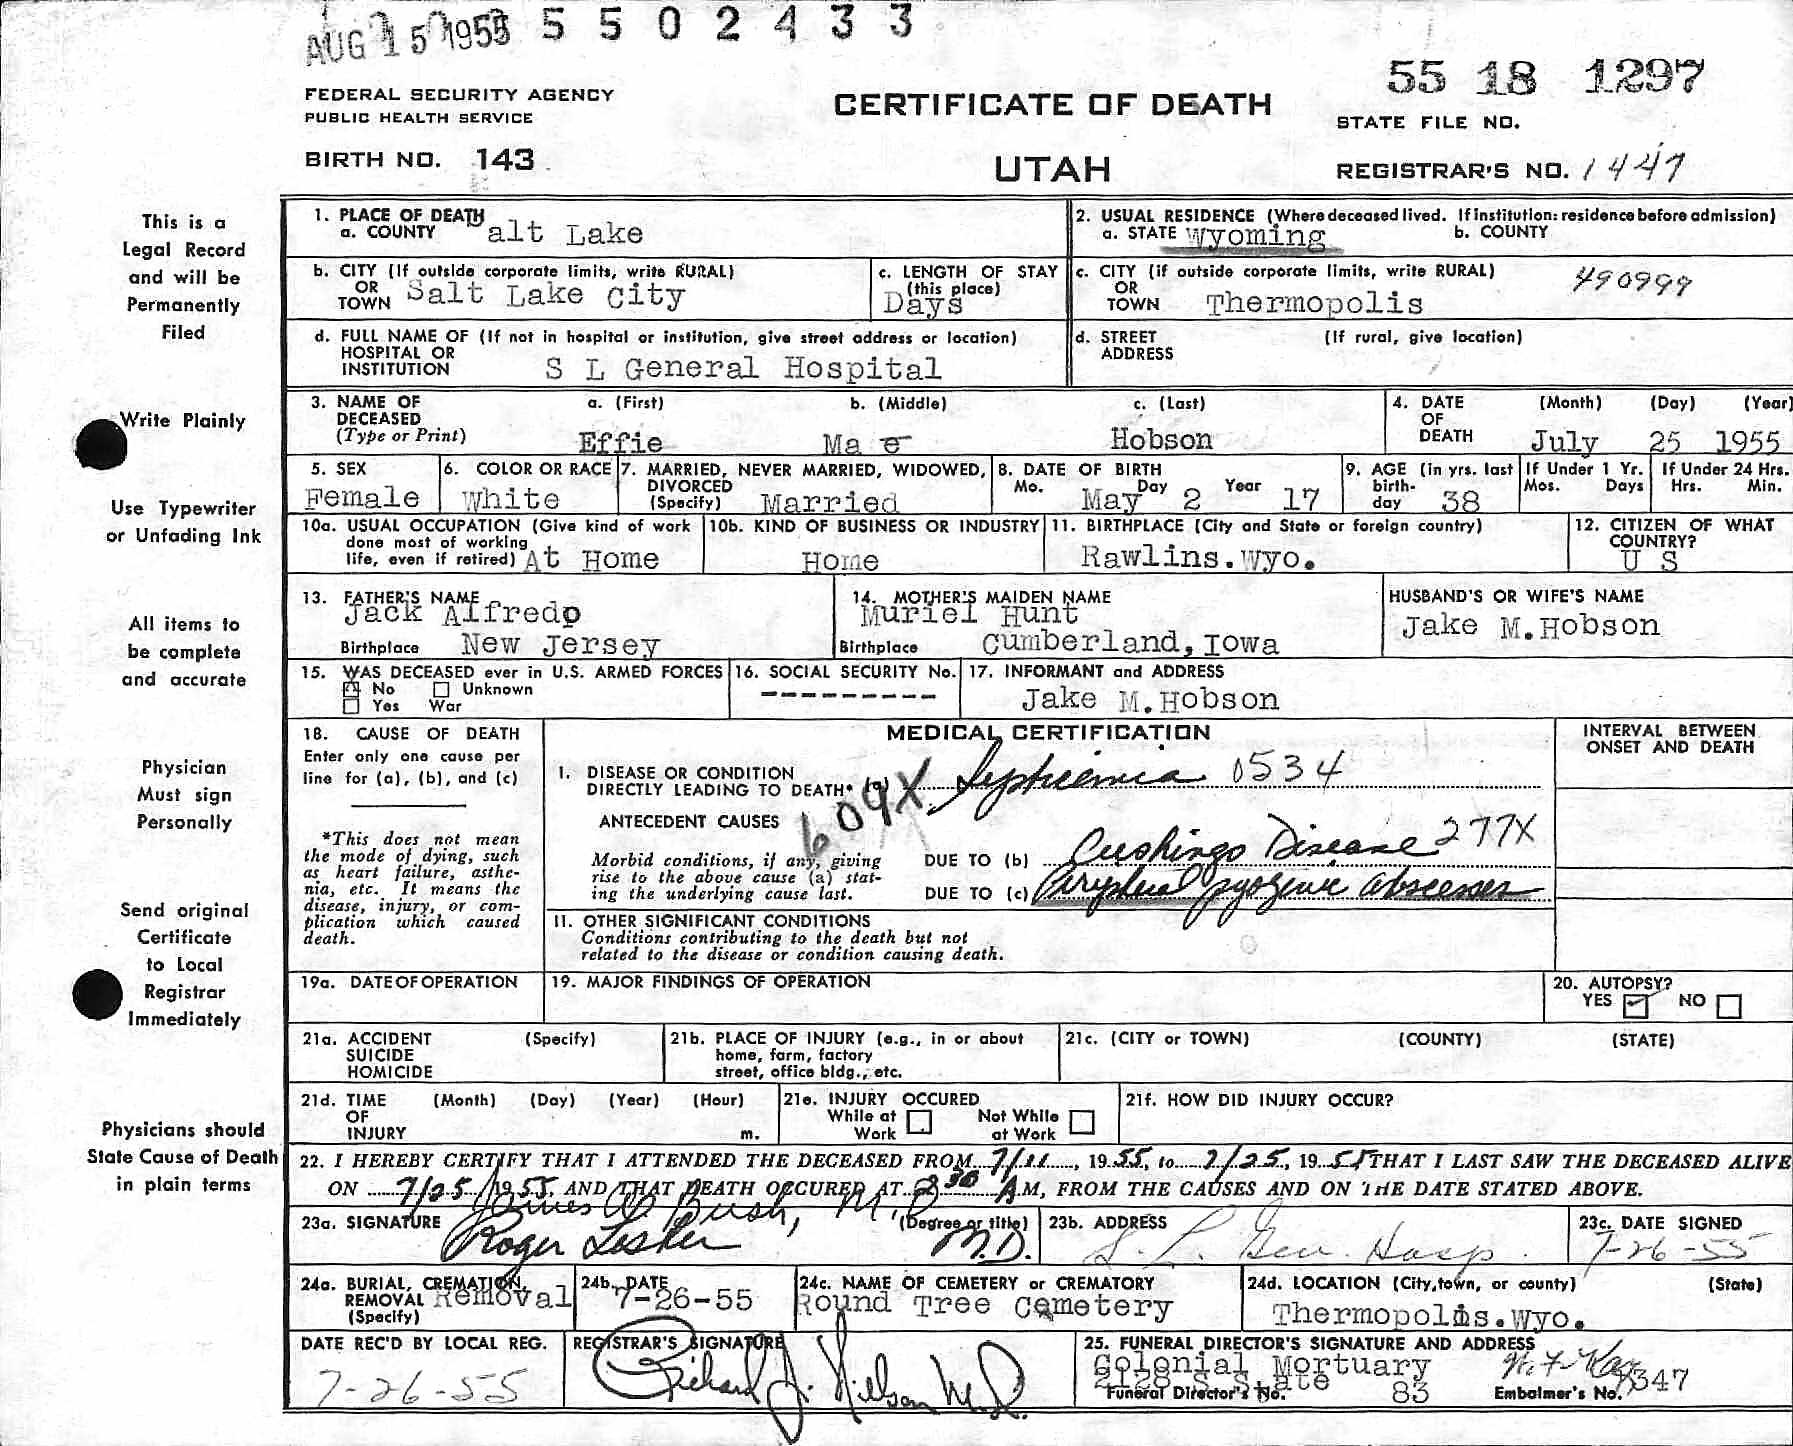 AUG 15 1955 5 5 0 2 4 3 3
55 18 1297
FEDERAL SECURITY AGENCY
PUBLIC HEALTH SERVICE
CERTIFICATE OF DEATH
STATE FILE NO.
BIRTH NO. 143
UTAH
REGISTRAR'S NO. 1447
This is a
Legal Record
and will be
Permanently
Filed
Write Plainly
Use Typewriter
or Unfading Ink
All items to
be complete
and accurate
Physician
Must sign
Personally
Send original
Certificate
to Local
Registrar
Immediately
Physicians should
State Cause of Death
in plain terms
1. PLACE OF DEATH
a. COUNTY Salt Lake
2. USUAL RESIDENCE (Where deceased lived. If institution: residence before admission)
a. STATE Wyoming b. COUNTY
b. CITY (If outside corporate limits, write RURAL)
OR
TOWN Salt Lake City
c. LENGTH OF STAY
(this place)
Days
c. CITY (if outside corporate limits, write RURAL) 490999
OR
TOWN Thermopolis
d. FULL NAME OF (If not in hospital or institution, give street address or location)
HOSPITAL OR
INSTITUTION S L General Hospital
d. STREET (If rural, give location)
ADDRESS
3. NAME OF a. (First) b. (Middle) c. (Last)
DECEASED
(Type or Print) Effie Mae Hobson
4. DATE (Month) (Day) (Year)
OF
DEATH July 25 1955
5. SEX
Female
6. COLOR OR RACE
White
7. MARRIED, NEVER MARRIED, WIDOWED,
DIVORCED
(Specify) Married
8. DATE OF BIRTH
Mo. Day Year
May 2 17
9. AGE (in yrs. last
birth-
day 38
If Under 1 Yr.
Mos. Days
If Under 24 Hrs.
Hrs. Min.
10a. USUAL OCCUPATION (Give kind of work
done most of working
life, even if retired) At Home
10b. KIND OF BUSINESS OR INDUSTRY
Home
11. BIRTHPLACE (City and State or foreign country)
Rawlins.Wyo.
12. CITIZEN OF WHAT
COUNTRY?
U S
13. FATHER'S NAME
Jack Alfredo
Birthplace New Jersey
14. MOTHER'S MAIDEN NAME
Muriel Hunt
Birthplace Cumberland, Iowa
HUSBAND'S OR WIFE'S NAME
Jake M.Hobson
15. WAS DECEASED ever in U.S. ARMED FORCES
No Unknown
Yes War
16. SOCIAL SECURITY No.
---------
17. INFORMANT and ADDRESS
Jake M.Hobson
18. CAUSE OF DEATH
Enter only one cause per
line for (a), (b), and (c)
*This does not mean
the mode of dying, such
as heart failure, asthe-
nia, etc. It means the
disease, injury, or com-
plication which caused
death.
MEDICAL CERTIFICATION
INTERVAL BETWEEN
ONSET AND DEATH
I. DISEASE OR CONDITION
DIRECTLY LEADING TO DEATH* (a) Septicemia 0534
609X
ANTECEDENT CAUSES
Morbid conditions, if any, giving
rise to the above cause (a) stat-
ing the underlying cause last.
DUE TO (b) Cushings Disease 277X
DUE TO (c) pyogenic abscesses
II. OTHER SIGNIFICANT CONDITIONS
Conditions contributing to the death but not
related to the disease or condition causing death.
19a. DATE OF OPERATION
19. MAJOR FINDINGS OF OPERATION
20. AUTOPSY?
YES NO
21a. ACCIDENT (Specify)
SUICIDE
HOMICIDE
21b. PLACE OF INJURY (e.g., in or about
home, farm, factory
street, office bldg., etc.
21c. (CITY or TOWN) (COUNTY) (STATE)
21d. TIME (Month) (Day) (Year) (Hour)
OF
INJURY m.
21e. INJURY OCCURED
While at Not While
Work at Work
21f. HOW DID INJURY OCCUR?
22. I HEREBY CERTIFY THAT I ATTENDED THE DECEASED FROM 7/11, 1955, to 7/25, 1955 THAT I LAST SAW THE DECEASED ALIVE
ON 7/25/1955, AND THAT DEATH OCCURED AT 2 30 A.M, FROM THE CAUSES AND ON THE DATE STATED ABOVE.
James W Bush, M.D.
23a. SIGNATURE (Degree or title)
Roger Lester M.D.
23b. ADDRESS
S. L. Gen. Hosp.
23c. DATE SIGNED
7-26-55
24a. BURIAL, CREMATION,
REMOVAL Removal
(Specify)
24b. DATE
7-26-55
24c. NAME OF CEMETERY or CREMATORY
Round Tree Cemetery
24d. LOCATION (City, town, or county) (State)
Thermopolis.Wyo.
DATE REC'D BY LOCAL REG.
7-26-55
REGISTRAR'S SIGNATURE
Richard J. Nielsen M.D.
25. FUNERAL DIRECTOR'S SIGNATURE AND ADDRESS
Colonial Mortuary
2128 S State
Funeral Director's No. 83 Embalmer's No. 347